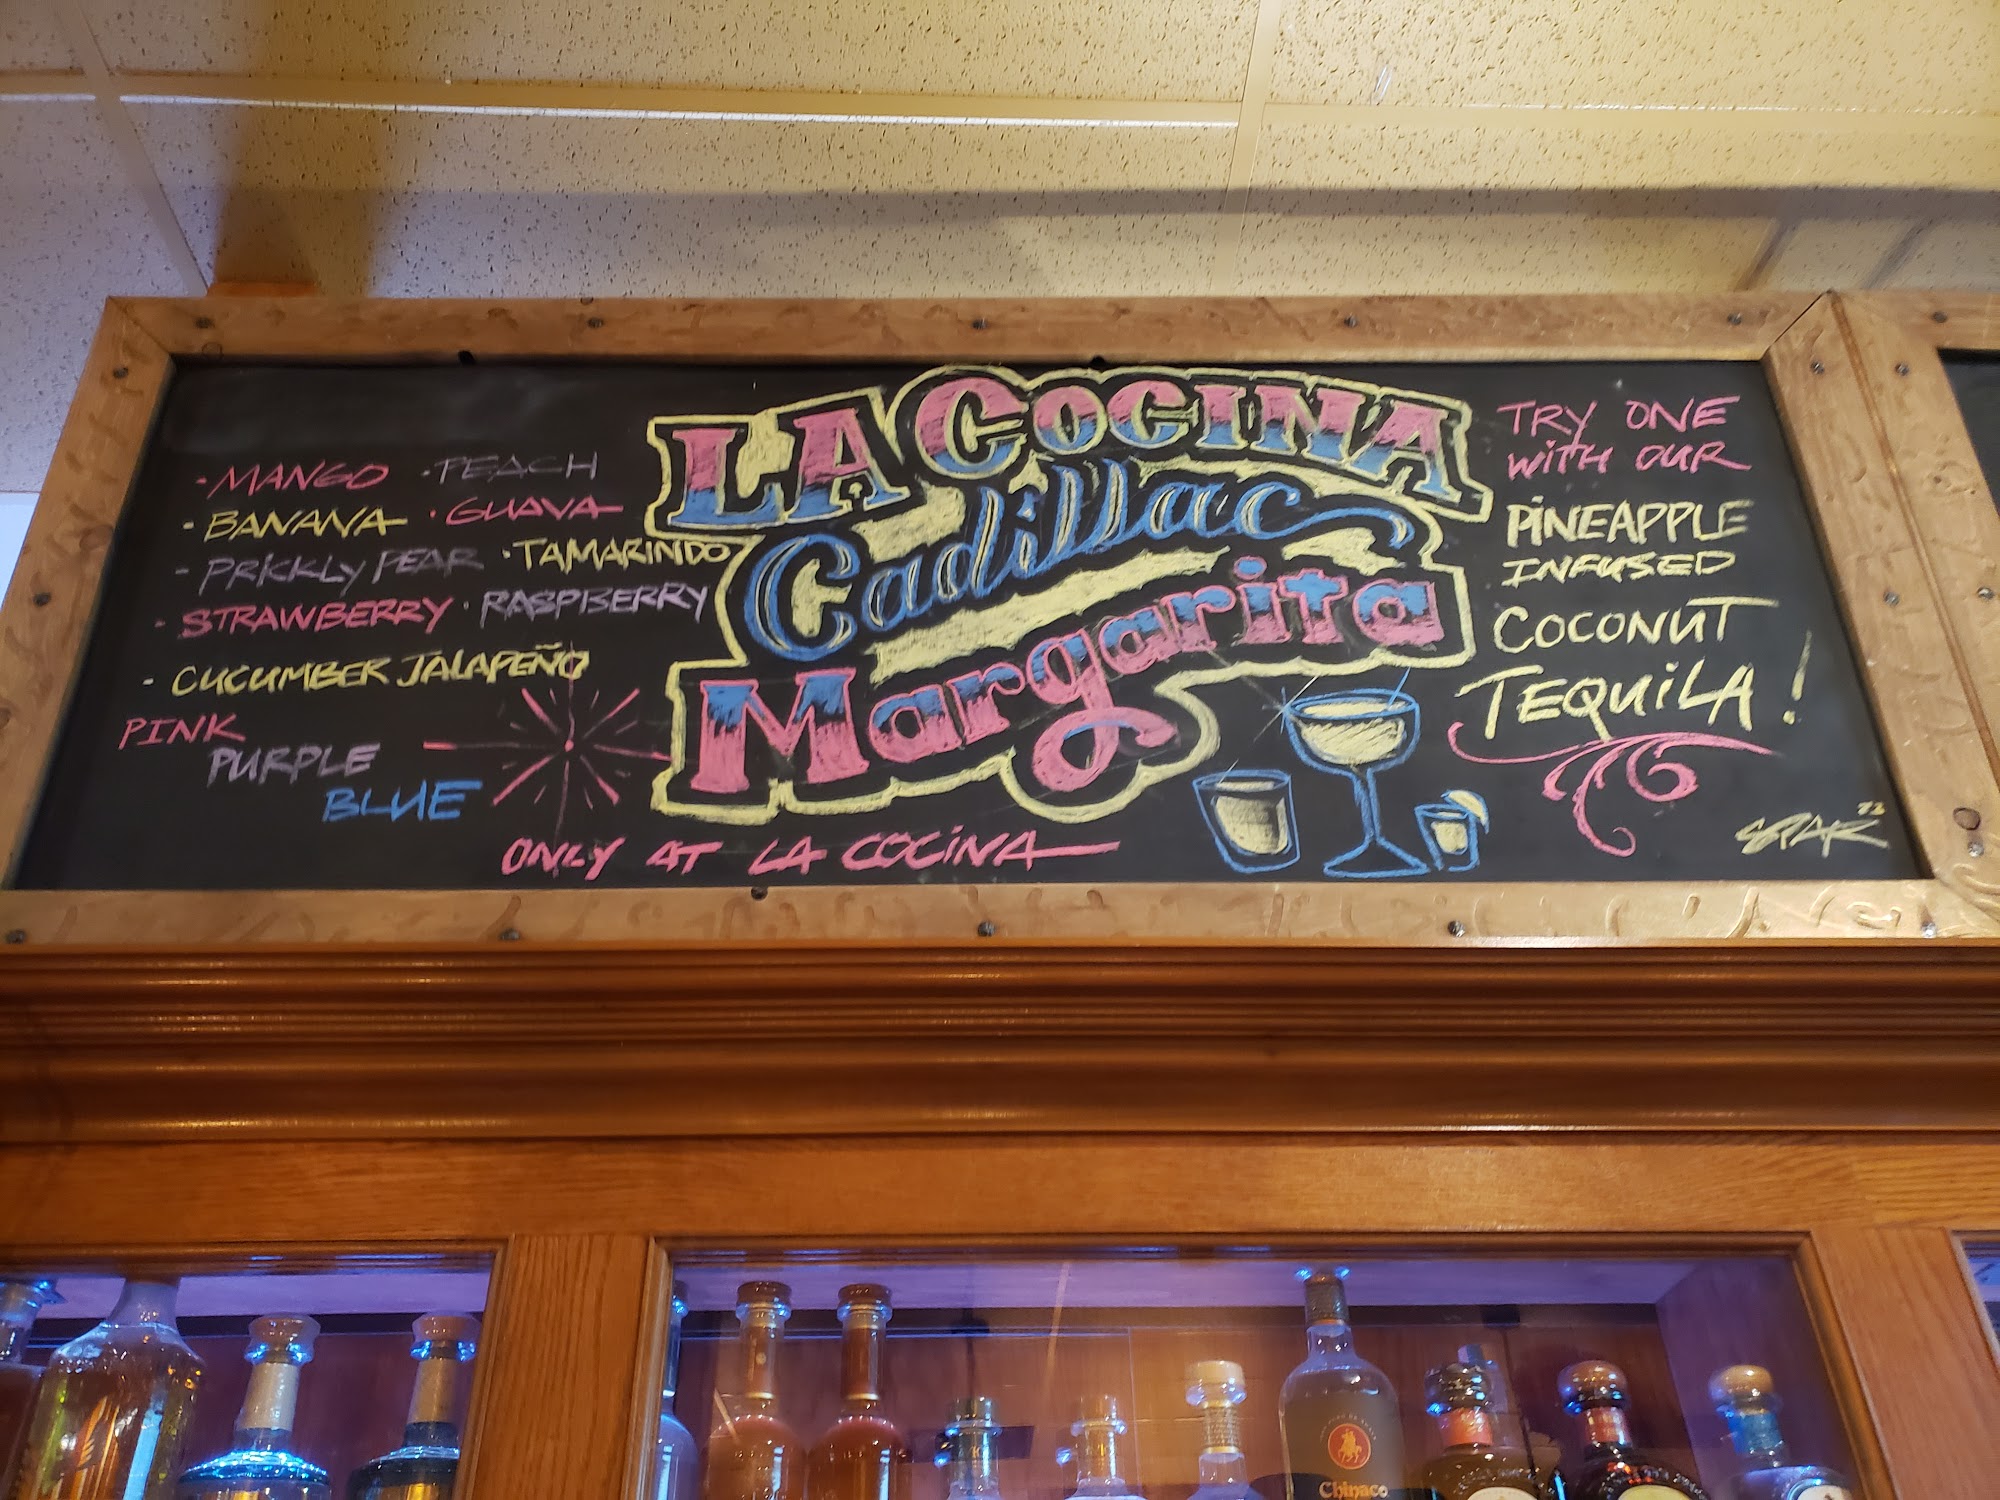 · MANGO · PEACH
· BANANA · GUAVA
- PRICKLY PEAR · TAMARINDO
· STRAWBERRY · RASPBERRY
- CUCUMBER JALAPEÑO
PINK
PURPLE
BLUE
LA COCINA
Cadillac
Margarita
ONLY AT LA COCINA
TRY ONE
WITH OUR
PINEAPPLE
INFUSED
COCONUT
TEQUILA!
SPAR
Chinaco